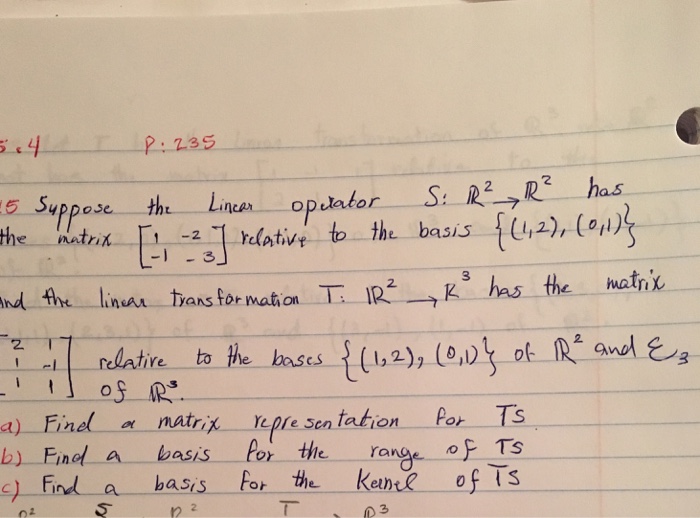 5.4 P: 235
15 Suppose the Linear operator S: ℝ² → ℝ² has
the matrix [1 -2
-1 -3] relative to the basis {(1,2), (0,1)}
and the linear transformation T: ℝ² → ℝ³ has the matrix
[2 1
1 -1
1 1] relative to the bases {(1,2), (0,1)} of ℝ² and ℰ₃
of ℝ³.
a) Find a matrix representation for TS
b) Find a basis for the range of TS
c) Find a basis for the Kernel of TS
ℝ² S ℝ² T ℝ³